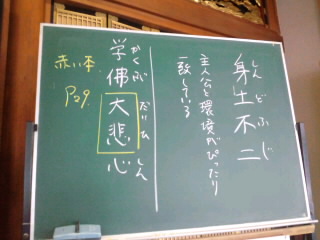 身土不二
しんどふじ
主人公と環境がぴったり
一致している
学佛大悲心
がくぶだいひしん
赤い本
P29